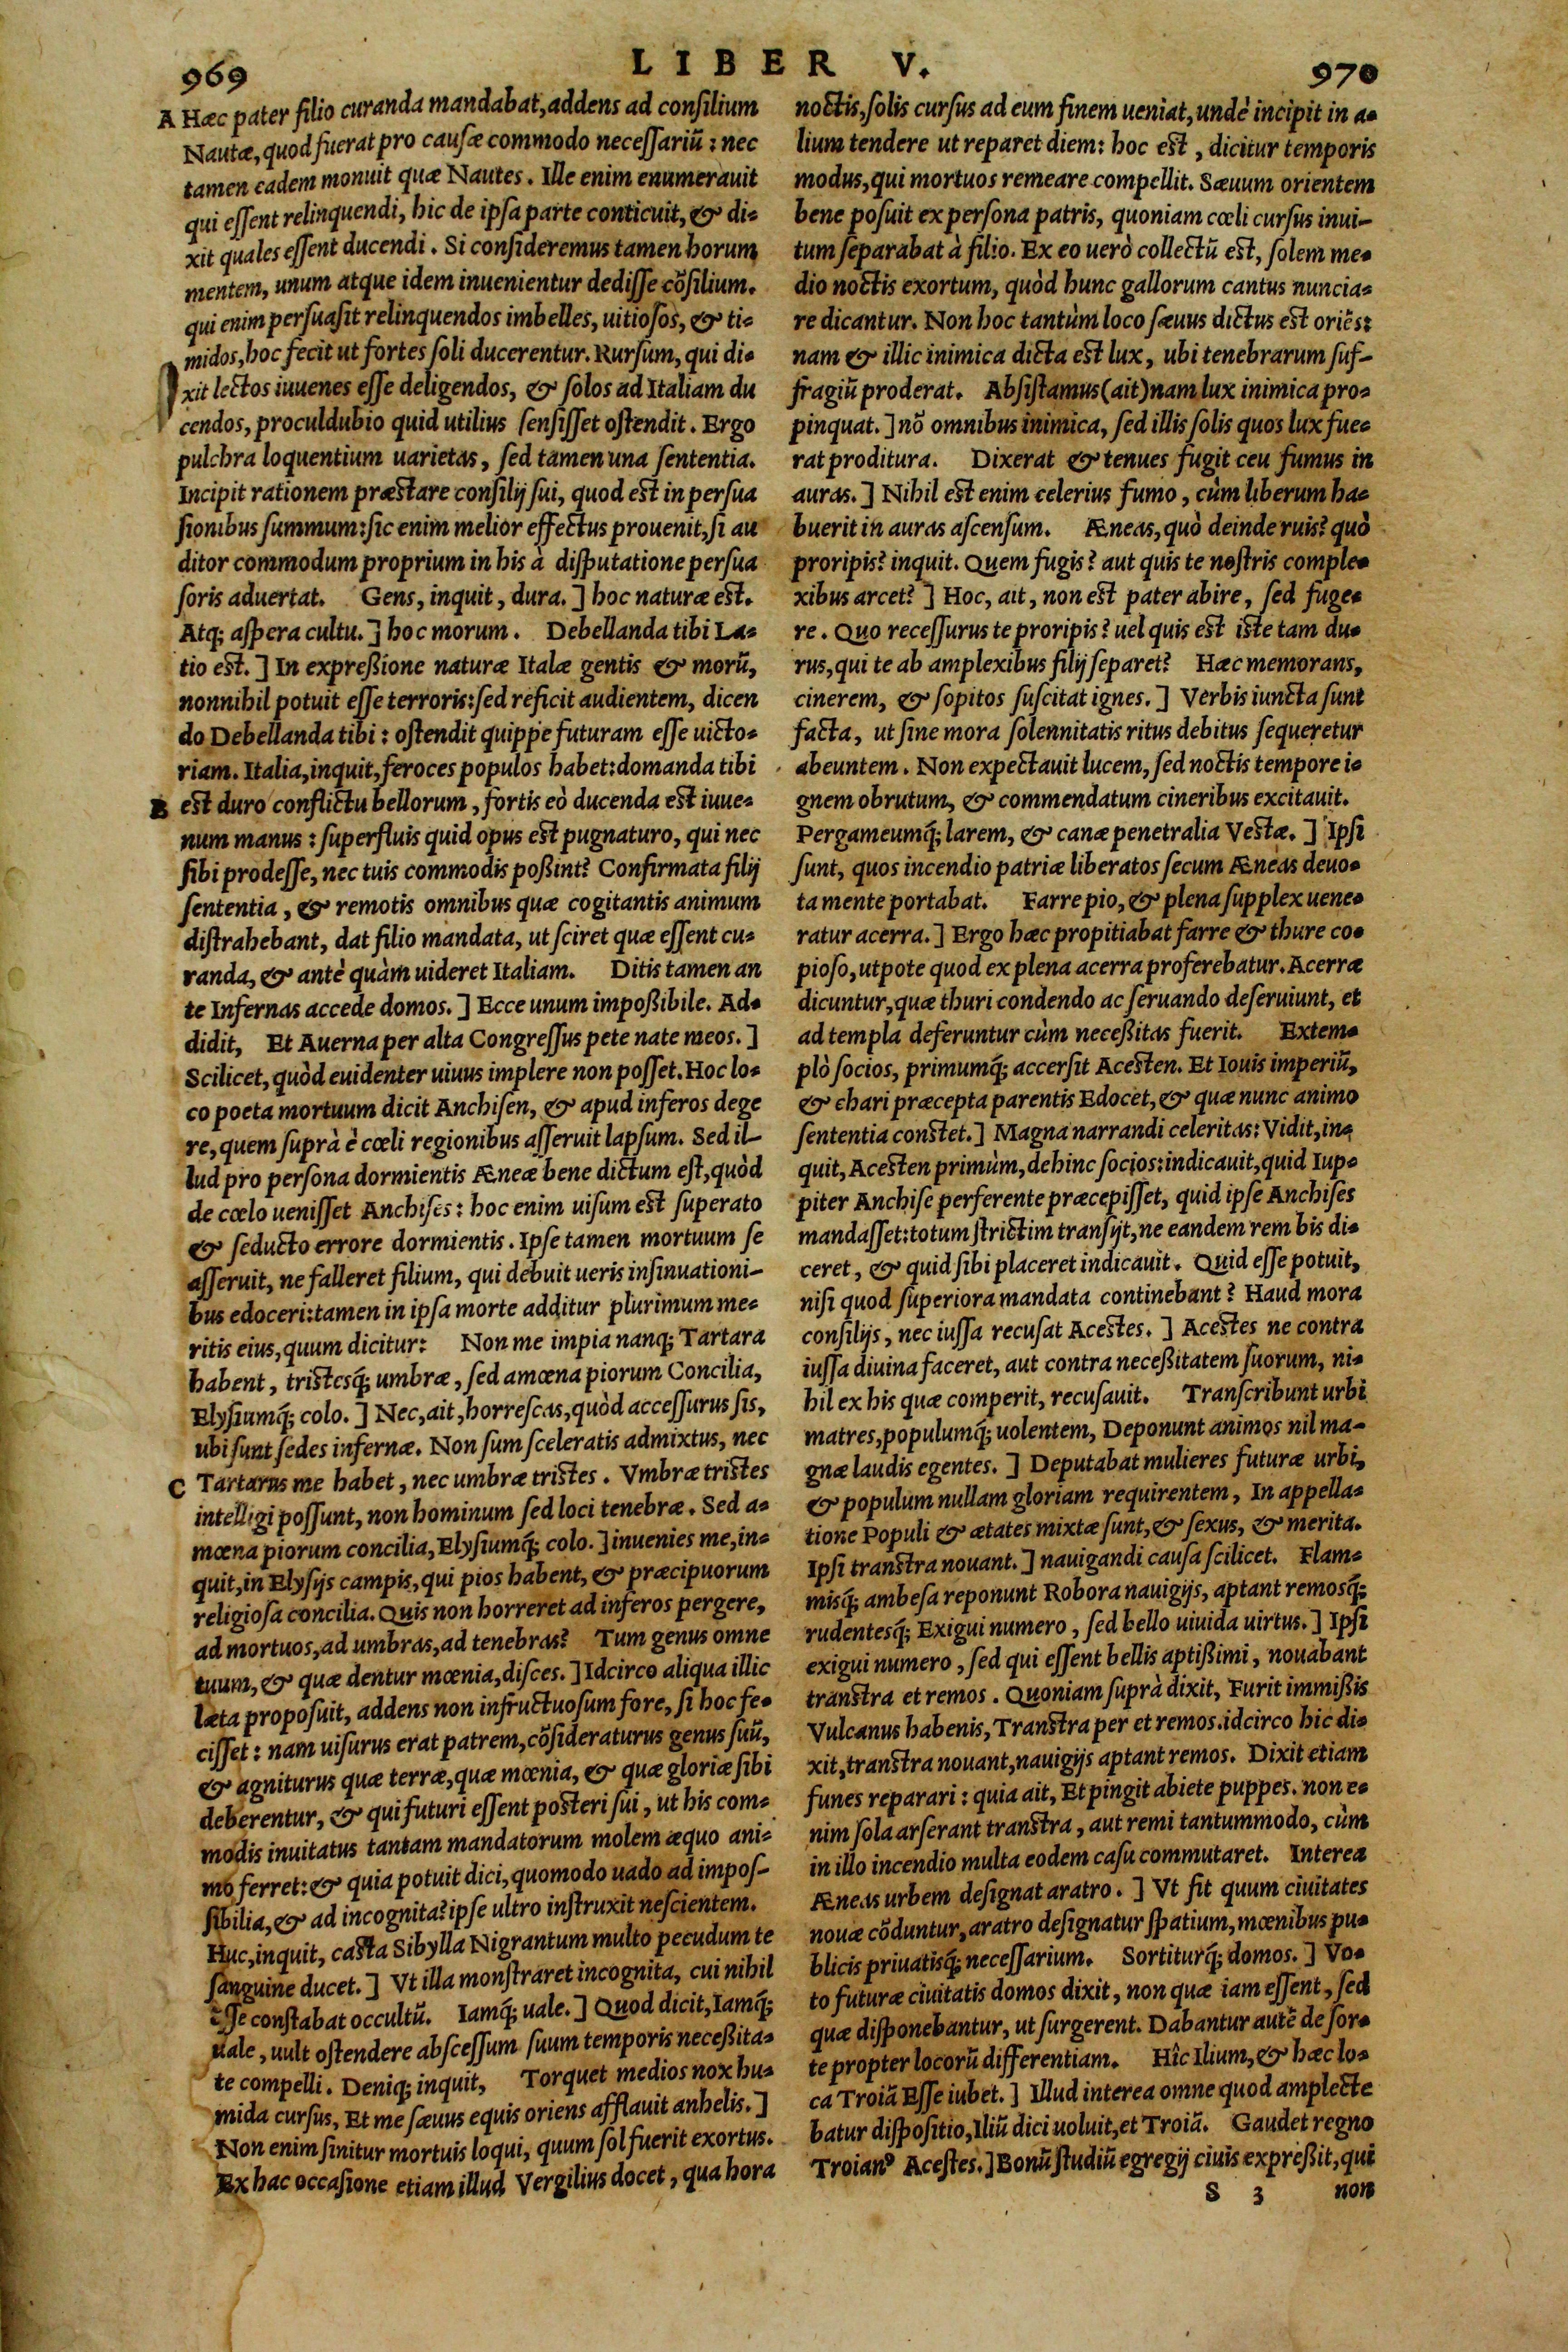 969
LIBER V.
970
A Hæc pater filio curanda mandabat, addens ad conſilium
Nautæ, quod fuerat pro cauſæ commodo neceſſariũ : nec
tamen eadem monuit quæ Nautes. Ille enim enumerauit
qui eſſent relinquendi, hic de ipſa parte conticuit, & di-
xit quales eſſent ducendi. Si conſideremus tamen horum
mentem, unum atque idem inuenientur dediſſe cõſilium.
qui enim perſuaſit relinquendos imbelles, uitioſos, & ti-
midos, hoc fecit ut fortes ſoli ducerentur. Rurſum, qui di-
xit lectos iuuenes eſſe deligendos, & ſolos ad Italiam du
cendos, proculdubio quid utilius ſenſiſſet oſtendit. Ergo
pulchra loquentium uarietas, ſed tamen una ſententia.
Incipit rationem præſtare conſilij ſui, quod eſt in perſua
ſionibus ſummum: ſic enim melior effectus prouenit, ſi au
ditor commodum proprium in his à diſputatione perſua
ſoris aduertat. Gens, inquit, dura. ] hoc naturæ eſt.
Atq; aſpera cultu. ] hoc morum. Debellanda tibi La-
tio eſt. ] In expreßione naturæ Italæ gentis & morũ,
nonnihil potuit eſſe terroris: ſed reficit audientem, dicen
do Debellanda tibi : oſtendit quippe futuram eſſe uicto-
riam. Italia, inquit, feroces populos habet: domanda tibi
B eſt duro conflictu bellorum, fortis eò ducenda eſt iuue-
num manus : ſuperfluis quid opus eſt pugnaturo, qui nec
ſibi prodeſſe, nec tuis commodis poßint? Confirmata filij
ſententia, & remotis omnibus quæ cogitantis animum
diſtrahebant, dat filio mandata, ut ſciret quæ eſſent cu-
randa, & antè quàm uideret Italiam. Ditis tamen an
te Infernas accede domos. ] Ecce unum impoßibile. Ad-
didit, Et Auerna per alta Congreſſus pete nate meos. ]
Scilicet, quòd euidenter uiuus implere non poſſet. Hoc lo-
co poeta mortuum dicit Anchiſen, & apud inferos dege
re, quem ſuprà è cœli regionibus aſſeruit lapſum. Sed il-
lud pro perſona dormientis Æneæ bene dictum eſt, quòd
de cœlo ueniſſet Anchiſes : hoc enim uiſum eſt ſuperato
& ſeducto errore dormientis. Ipſe tamen mortuum ſe
aſſeruit, ne falleret filium, qui debuit ueris inſinuationi-
bus edoceri: tamen in ipſa morte additur plurimum me-
ritis eius, quum dicitur: Non me impia nanq; Tartara
habent, triſtesq́; umbræ, ſed amœna piorum Concilia,
Elyſiumq́; colo. ] Nec, ait, horreſcas, quòd acceſſurus ſis,
ubi ſunt ſedes infernæ. Non ſum ſceleratis admixtus, nec
C Tartarus me habet, nec umbræ triſtes. Vmbræ triſtes
intelligi poſſunt, non hominum ſed loci tenebræ. Sed a-
mœna piorum concilia, Elyſiumq́; colo. ] inuenies me, in-
quit, in Elyſijs campis, qui pios habent, & præcipuorum
religioſa concilia. Quis non horreret ad inferos pergere,
ad mortuos, ad umbras, ad tenebras? Tum genus omne
tuum, & quæ dentur mœnia, diſces. ] Idcirco aliqua illic
læta propoſuit, addens non infructuoſum fore, ſi hoc fe-
ciſſet : nam uiſurus erat patrem, cõſideraturus genus ſuũ,
& agniturus quæ terræ, quæ mœnia, & quæ gloriæ ſibi
deberentur, & qui futuri eſſent poſteri ſui, ut his com-
modis inuitatus tantam mandatorum molem æquo ani-
mo ferret: & quia potuit dici, quomodo uado ad impoſ-
ſibilia, & ad incognita? ipſe ultro inſtruxit neſcientem.
Huc, inquit, caſta Sibylla Nigrantum multo pecudum te
ſanguine ducet. ] Vt illa monſtraret incognita, cui nihil
eſſe conſtabat occultũ. Iamq́; uale. ] Quod dicit, Iamq́;
uale, uult oſtendere abſceſſum ſuum temporis neceßita-
te compelli. Deniq; inquit, Torquet medios nox hu-
mida curſus, Et me ſæuus equis oriens afflauit anhelis. ]
Non enim ſinitur mortuis loqui, quum ſol fuerit exortus.
Ex hac occaſione etiam illud Vergilius docet, qua hora
noctis, ſolis curſus ad eum finem ueniat, undè incipit in a-
lium tendere ut reparet diem: hoc eſt, dicitur temporis
modus, qui mortuos remeare compellit. Sæuum orientem
bene poſuit ex perſona patris, quoniam cœli curſus inui-
tum ſeparabat à filio. Ex eo uerò collectũ eſt, ſolem me-
dio noctis exortum, quòd hunc gallorum cantus nuncia-
re dicantur. Non hoc tantùm loco ſæuus dictus eſt oriẽs:
nam & illic inimica dicta eſt lux, ubi tenebrarum ſuf-
fragiũ proderat. Abſiſtamus (ait) nam lux inimica pro-
pinquat. ] nõ omnibus inimica, ſed illis ſolis quos lux fue-
rat proditura. Dixerat & tenues fugit ceu fumus in
auras. ] Nihil eſt enim celerius fumo, cùm liberum ha-
buerit in auras aſcenſum. Æneas, quò deinde ruis? quò
proripis? inquit. Quem fugis? aut quis te noſtris comple-
xibus arcet? ] Hoc, ait, non eſt pater abire, ſed fuge-
re. Quo receſſurus te proripis? uel quis eſt iſte tam du-
rus, qui te ab amplexibus filij ſeparet? Hæc memorans,
cinerem, & ſopitos ſuſcitat ignes. ] Verbis iuncta ſunt
facta, ut ſine mora ſolennitatis ritus debitus ſequeretur
abeuntem. Non expectauit lucem, ſed noctis tempore i-
gnem obrutum, & commendatum cineribus excitauit.
Pergameumq́; larem, & canæ penetralia Veſtæ. ] Ipſi
ſunt, quos incendio patriæ liberatos ſecum Æneas deuo-
ta mente portabat. Farre pio, & plena ſupplex uene-
ratur acerra. ] Ergo hæc propitiabat farre & thure co-
pioſo, utpote quod ex plena acerra proferebatur. Acerræ
dicuntur, quæ thuri condendo ac ſeruando deſeruiunt, et
ad templa deferuntur cùm neceßitas fuerit. Extem-
plò ſocios, primumq́; accerſit Aceſten. Et Iouis imperiũ,
& chari præcepta parentis Edocet, & quæ nunc animo
ſententia conſtet. ] Magna narrandi celeritas: Vidit, in-
quit, Aceſten primùm, dehinc ſocios: indicauit, quid Iup-
piter Anchiſe perferente præcepiſſet, quid ipſe Anchiſes
mandaſſet: totum ſtrictim tranſijt, ne eandem rem bis di-
ceret, & quid ſibi placeret indicauit. Quid eſſe potuit,
niſi quod ſuperiora mandata continebant? Haud mora
conſilijs, nec iuſſa recuſat Aceſtes. ] Aceſtes ne contra
iuſſa diuina faceret, aut contra neceßitatem ſuorum, ni-
hil ex his quæ comperit, recuſauit. Tranſcribunt urbi
matres, populumq́; uolentem, Deponunt animos nil ma-
gnæ laudis egentes. ] Deputabat mulieres futuræ urbi,
& populum nullam gloriam requirentem, In appella-
tione Populi & ætates mixtæ ſunt, & ſexus, & merita.
Ipſi tranſtra nouant. ] nauigandi cauſa ſcilicet. Flam-
misq́; ambeſa reponunt Robora nauigijs, aptant remosq́;
rudentesq́; Exigui numero, ſed bello uiuida uirtus. ] Ipſi
exigui numero, ſed qui eſſent bellis aptißimi, nouabant
tranſtra et remos. Quoniam ſuprà dixit, Furit immißis
Vulcanus habenis, Tranſtra per et remos. idcirco hic di-
xit, tranſtra nouant, nauigijs aptant remos. Dixit etiam
funes reparari : quia ait, Et pingit abiete puppes. non e-
nim ſola arſerant tranſtra, aut remi tantummodo, cùm
in illo incendio multa eodem caſu commutaret. Interea
Æneas urbem deſignat aratro. ] Vt fit quum ciuitates
nouæ cõduntur, aratro deſignatur ſpatium, mœnibus pu-
blicis priuatisq́; neceſſarium. Sortiturq́; domos. ] Vo-
to futuræ ciuitatis domos dixit, non quæ iam eſſent, ſed
quæ diſponebantur, ut ſurgerent. Dabantur autẽ de ſor-
te propter locorũ differentiam. Hîc Ilium, & hæc lo-
ca Troiã Eſſe iubet. ] Illud interea omne quod amplecte
batur diſpoſitio, Iliũ dici uoluit, et Troiã. Gaudet regno
Troianꝰ Aceſtes. ] Bonũ ſtudiũ egregij ciuis expreßit, qui
S 3 non